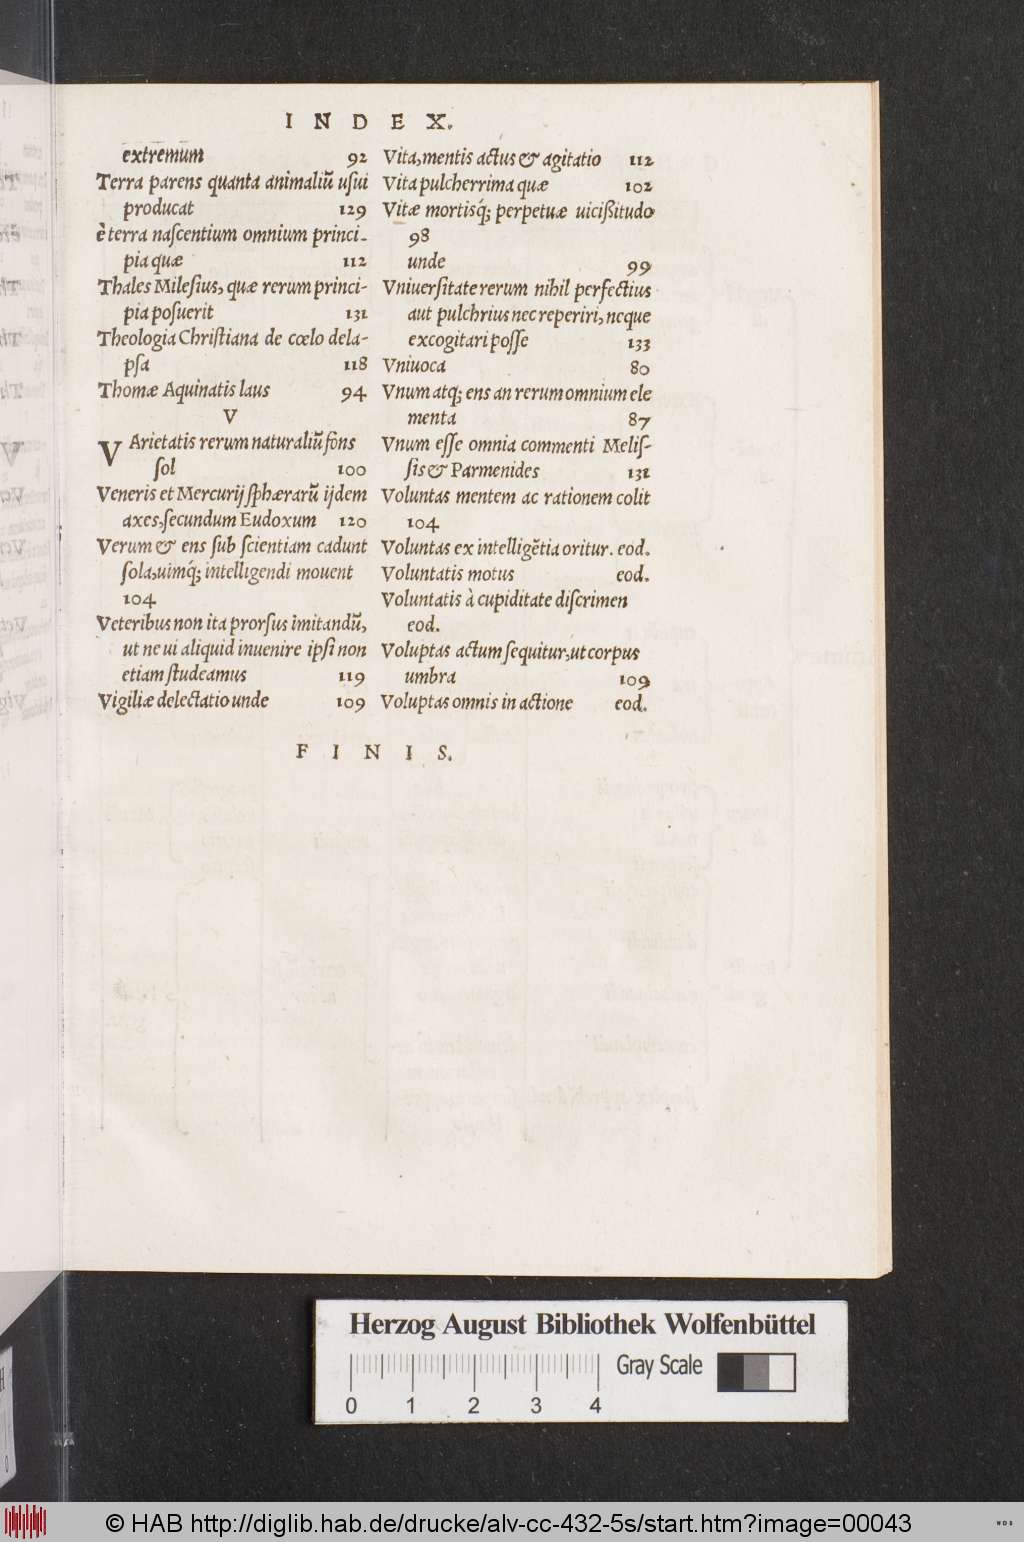 INDEX.
extremum 92
Terra parens quanta animaliũ uſui
producat 129
è terra naſcentium omnium princi-
pia quæ 112
Thales Mileſius, quæ rerum princi-
pia poſuerit 131
Theologia Chriſtiana de cœlo dela-
pſa 118
Thomæ Aquinatis laus 94
V
VArietatis rerum naturaliũ fõns
ſol 100
Veneris et Mercurij ſphærarũ ijdem
axes, ſecundum Eudoxum 120
Verum & ens ſub ſcientiam cadunt
ſola, uimq́; intelligendi mouent
104
Veteribus non ita prorſus imitandũ,
ut ne ui aliquid inuenire ipſi non
etiam ſtudeamus 119
Vigiliæ delectatio unde 109
Vita, mentis actus & agitatio 112
Vita pulcherrima quæ 102
Vitæ mortisq́; perpetuæ uicißitudo
98
unde 99
Vniuerſitate rerum nihil perfectius
aut pulchrius nec reperiri, neque
excogitari poſſe 133
Vniuoca 80
Vnum atq; ens an rerum omnium ele
menta 87
Vnum eſſe omnia commenti Meliſ-
ſis & Parmenides 131
Voluntas mentem ac rationem colit
104
Voluntas ex intelligẽtia oritur. eod.
Voluntatis motus eod.
Voluntatis à cupiditate diſcrimen
eod.
Voluptas actum ſequitur, ut corpus
umbra 109
Voluptas omnis in actione eod.
FINIS.
Herzog August Bibliothek Wolfenbüttel
Gray Scale
0 1 2 3 4
© HAB http://diglib.hab.de/drucke/alv-cc-432-5s/start.htm?image=00043